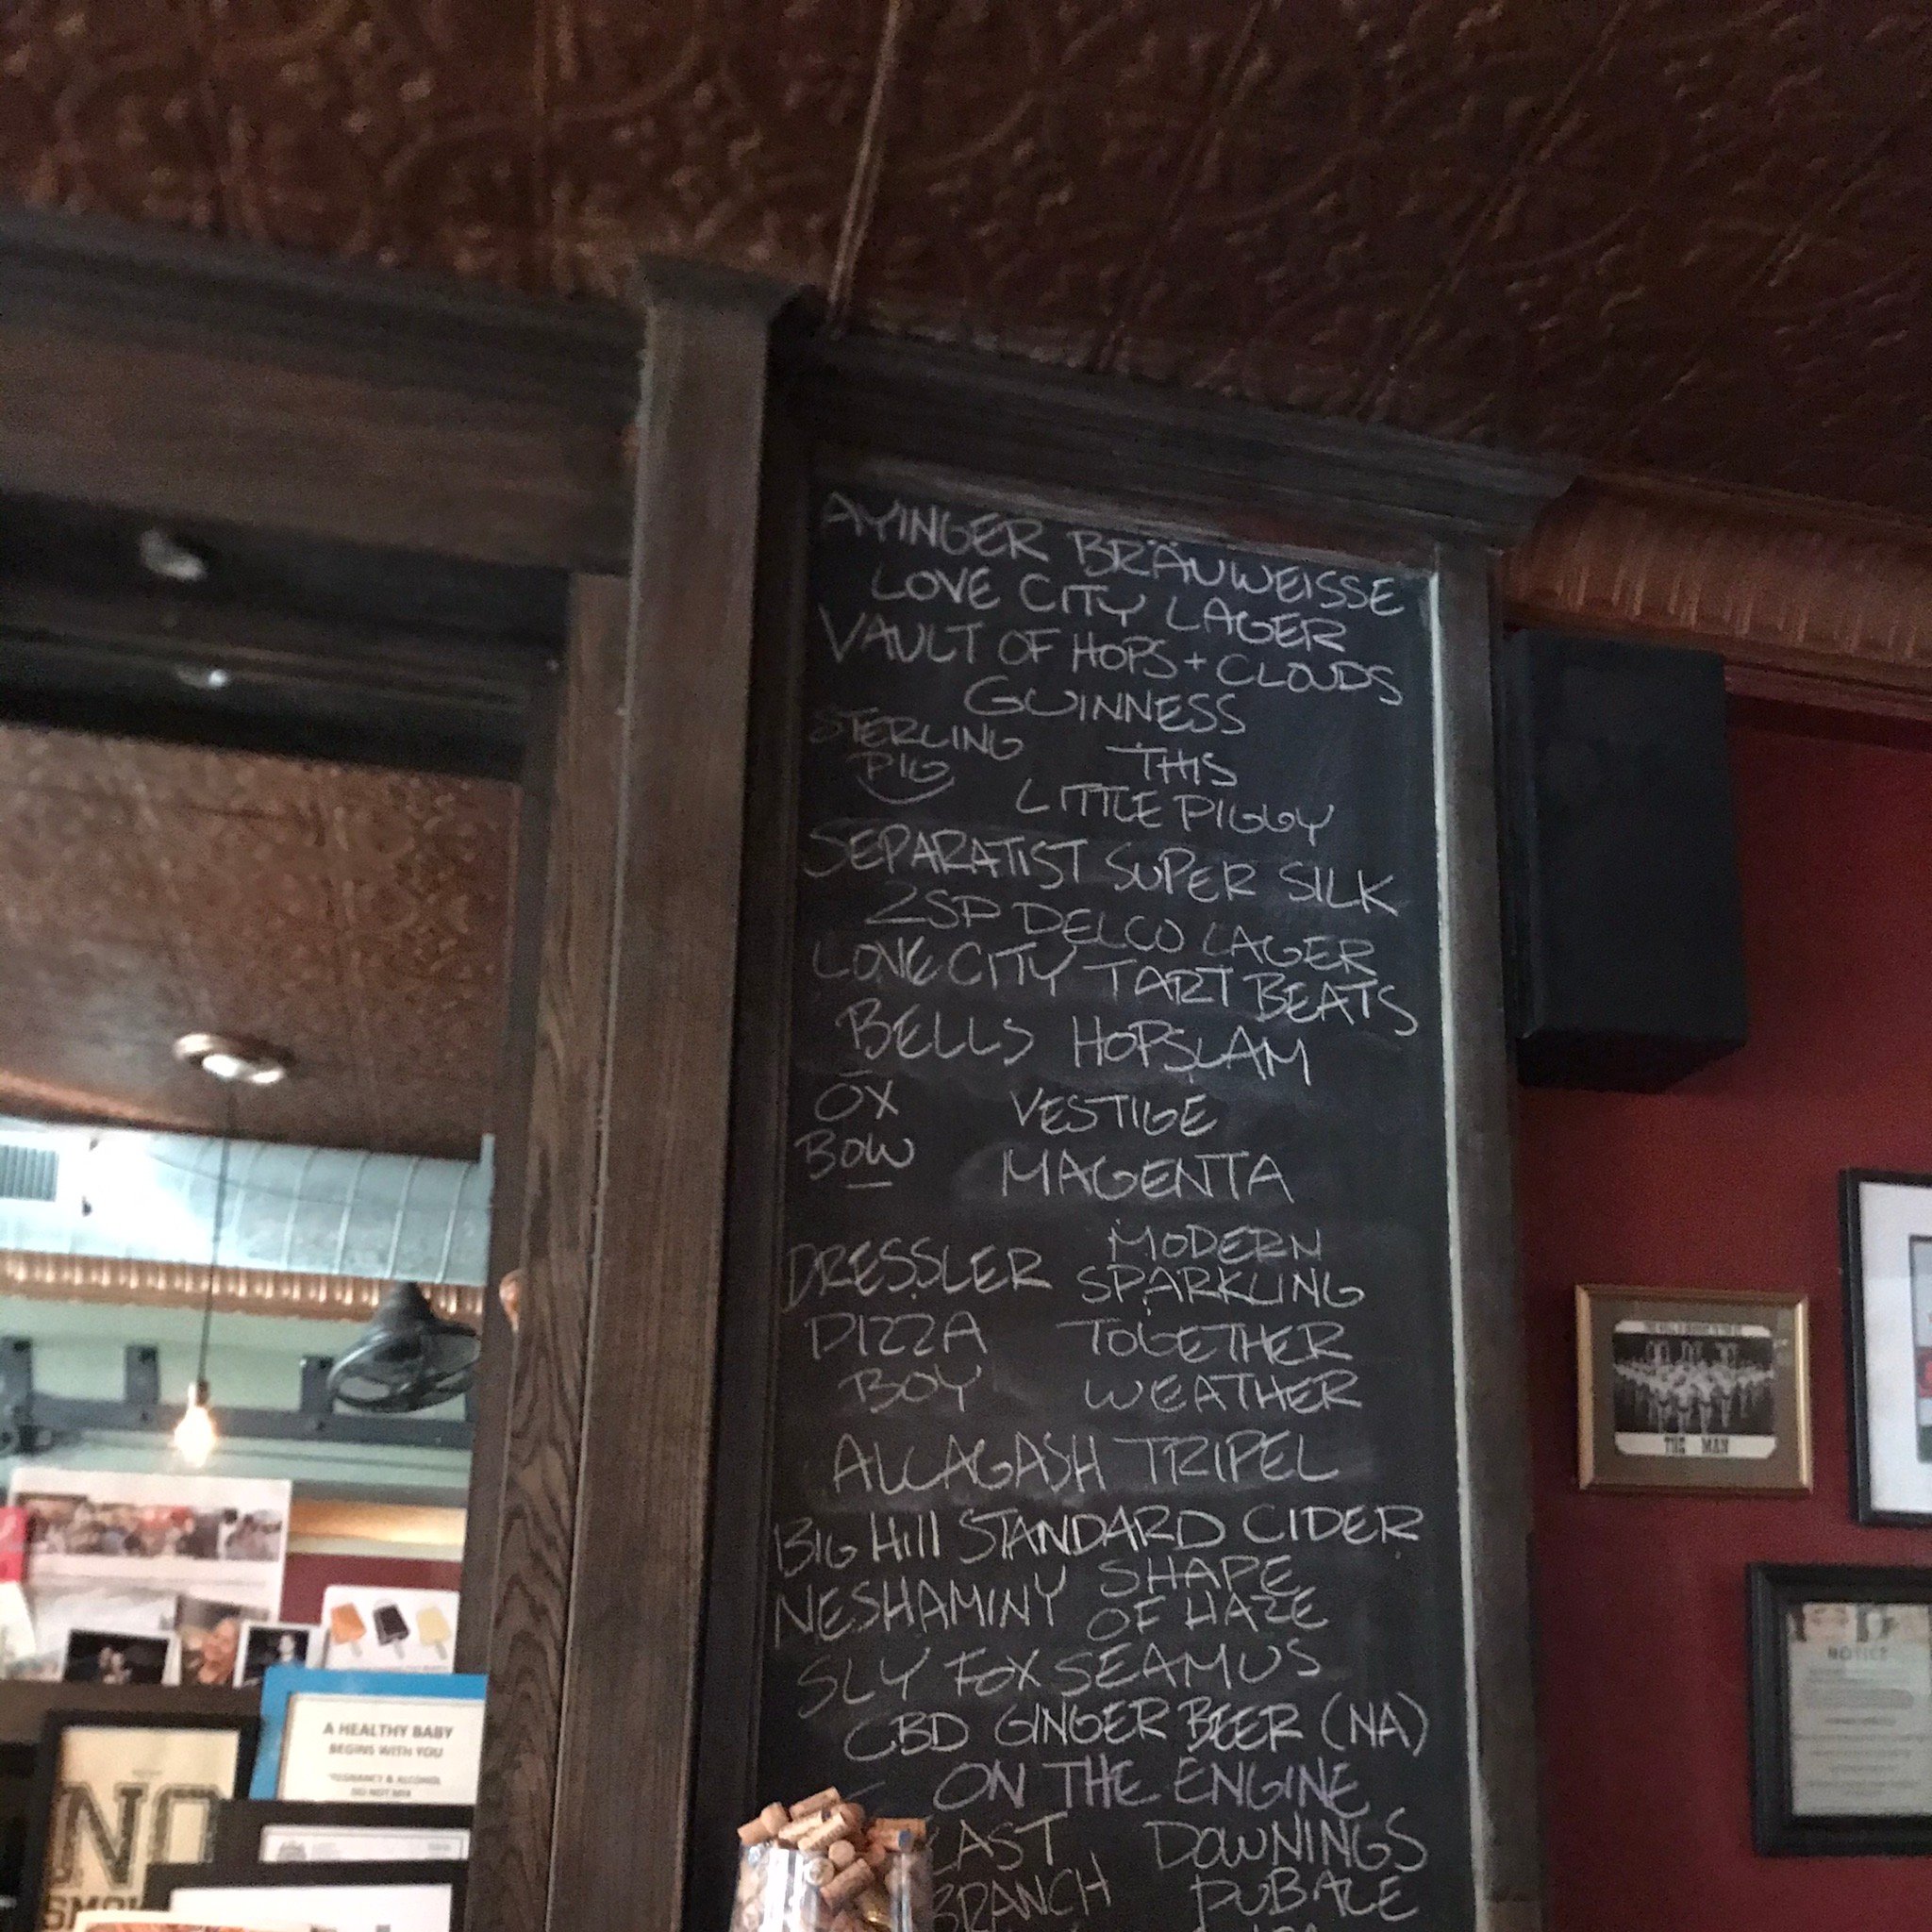 AYINGER BRÄUWEISSE
LOVE CITY LAGER
VAULT OF HOPS + CLOUDS
GUINNESS
STERLING PIG THIS LITTLE PIGGY
SEPARATIST SUPER SILK
2SP DELCO LAGER
LOVE CITY TART BEATS
BELLS HOPSLAM
OX BOW VESTIGE MAGENTA
DRESSLER MODERN SPARKLING
PIZZA TOGETHER
BOY WEATHER
ALLAGASH TRIPEL
BIG Hill STANDARD CIDER
NESHAMINY SHAPE OF HAZE
SLY FOX SEAMUS
CBD GINGER BEER (NA)
ON THE ENGINE
EAST DOWNINGS
BRANCH PUB ALE
THE MAN
NOTICE
A HEALTHY BABY
BEGINS WITH YOU
PREGNANCY & ALCOHOL
DO NOT MIX
NO